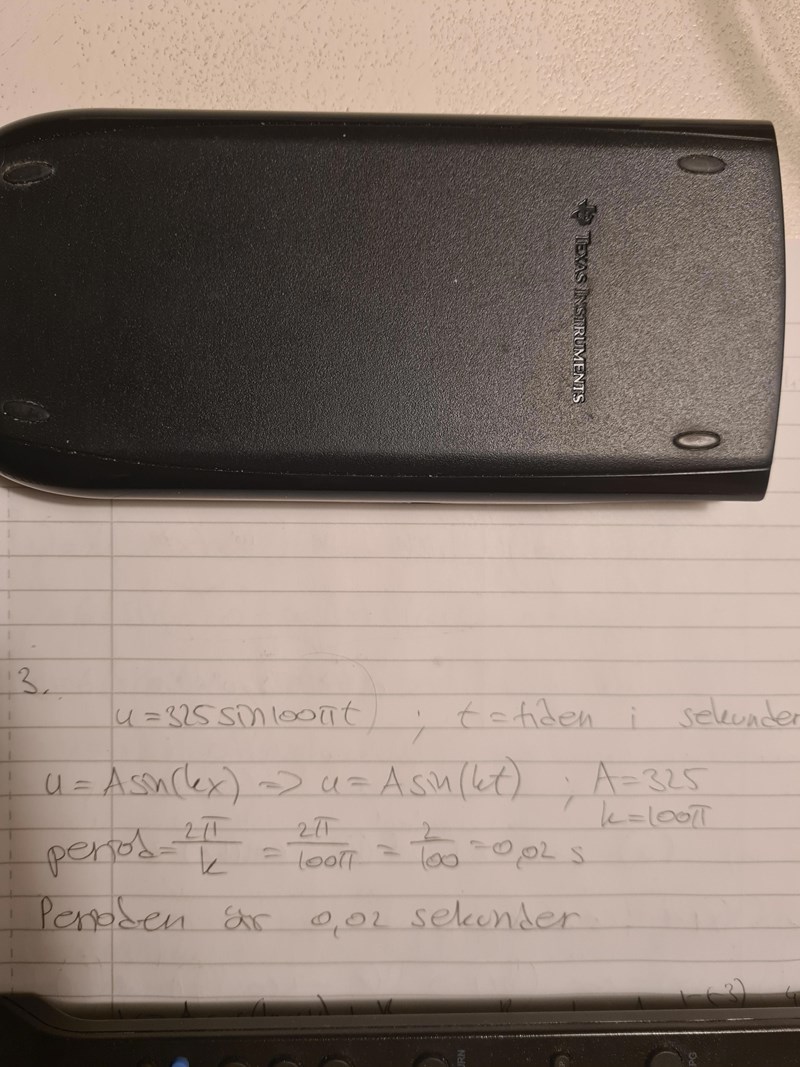 TEXAS INSTRUMENTS
3.
u = 325 sin 100πt ; t = tiden i sekunder
u = A sin(kx) => u = A sin(kt) ; A = 325
k = 100π
period = 2π/k = 2π/100π = 2/100 = 0,02 s
Perioden är 0,02 sekunder